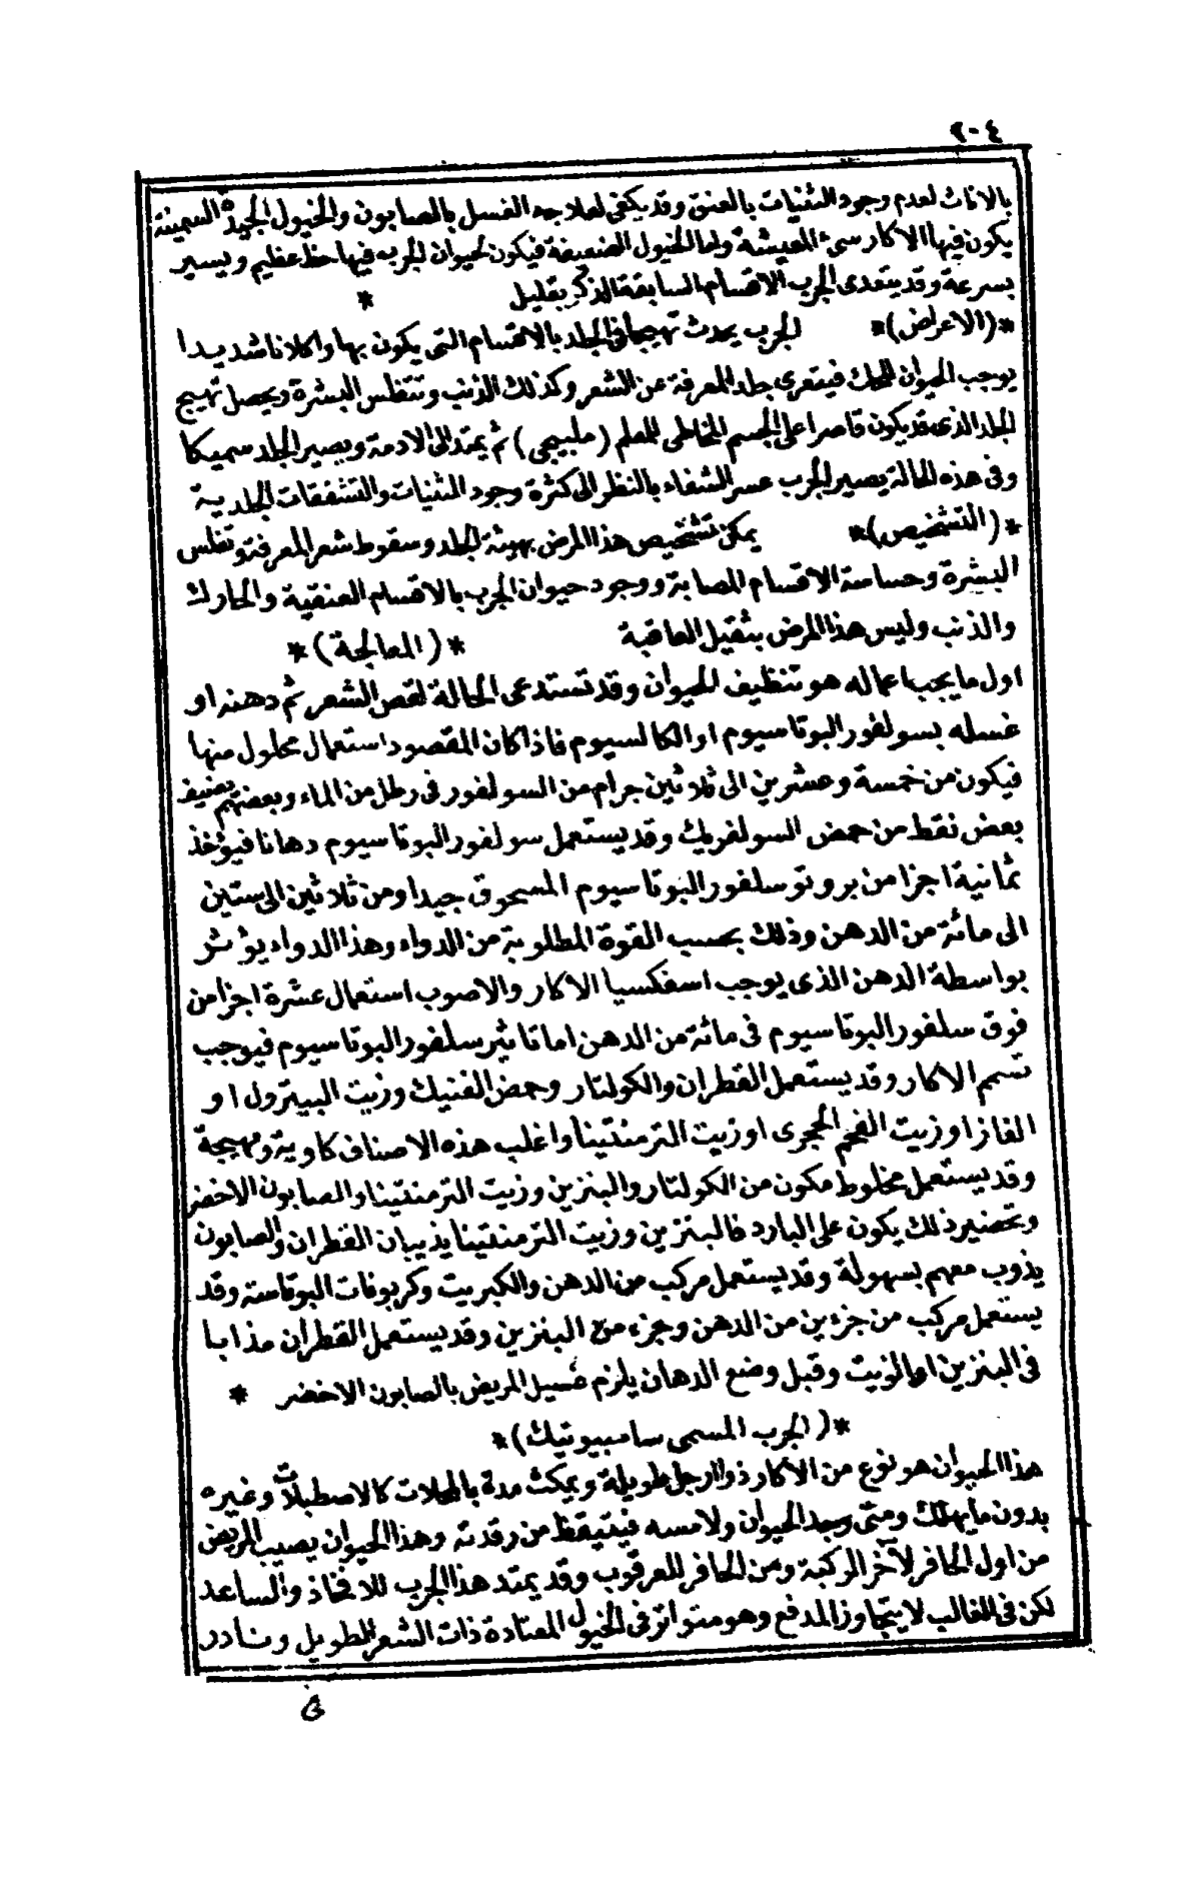 ٢٠٤
بالاناث لعدم وجود الثنيات بالعنق وقد يكفى لعلاجه الغسل بالصابون والخيول الجيدة السمينة
يكون فيها الاكار سىء المعيشة واما الخيول الضعيفة فيكون لحيوان الجرب فيها حظ عظيم ويسير
بسرعة وقد يتعدى الجرب الاقسام السابقة الذكر بقليل *
*(الاعراض)* الجرب يحدث تهيجا فى الجلد بالاقسام التى يكون بها واكلانا شديدا
يوجب الحيوان للحك فيتعرى جلد المعرفة عن الشعر وكذلك الذنب وتتفلس البشرة ويحصل تهييج
الجلد الذى قد يكون قاصرا على الجسم المخاطى للمعلم (ملبيجى) ثم يمتد الى الادمة ويصير الجلد سميكا
وفى هذه الحالة يصير الجرب عسر الشفاء بالنظر الى كثرة وجود الثنيات والتشققات الجلدية
*(التشخيص)* يمكن تشخيص هذا المرض بهيئة الجلد وسقوط شعر المعرفة وتفلس
البشرة وحساسة الاقسام المصابة ووجود حيوان الجرب بالاقسام العنقية والحارك
والذنب وليس هذا المرض بثقيل العاقبة *(المعالجة)*
اول ما يجب اعماله هو تنظيف الحيوان وقد تستدعى الحالة لقص الشعر ثم دهنه او
غسله بسولفور البوتاسيوم او الكالسيوم فاذا كان المقصود استعمال محلول منها
فيكون من خمسة وعشرين الى ثلاثين جرام من السولفور فى رطل من الماء وبعضهم يضيف
بعض نقط من حمض السولفريك وقد يستعمل سولفور البوتاسيوم دهانا فيؤخذ
ثمانية اجزا من بروتوسلفور البوتاسيوم المسحوق جيدا ومن ثلاثين الى ستين
الى مائة من الدهن وذلك بحسب القوة المطلوبة من الدواء وهذا الدواء يؤثر
بواسطة الدهن الذى يوجب اسفكسيا الاكار والاصوب استعمال عشرة اجزا من
فوق سلفور البوتاسيوم فى مائة من الدهن اما تاثير سلفور البوتاسيوم فيوجب
تسمم الاكار وقد يستعمل القطران والكولتار وحمض الفنيك وزيت البيترول او
الغاز او زيت الفحم الحجرى او زيت الترمنتينا واغلب هذه الاصناف كاوية ومهيجة
وقد يستعمل مخلوط مكون من الكولتار والبنزين وزيت الترمنتينا والصابون الاخضر
وتحضير ذلك يكون على البارد فالبنزين وزيت الترمنتينا يذيبان القطران والصابون
يذوب معهم بسهولة وقد يستعمل مركب من الدهن والكبريت وكربونات البوتاسة وقد
يستعمل مركب من جزءين من الدهن وجزء من البنزين وقد يستعمل القطران مذابا
فى البنزين او الزيت وقبل وضع الدهان يلزم غسيل المريض بالصابون الاخضر *
*(الجرب المسمى سامبيوتيك)*
هذا الحيوان هو نوع من الاكار ذو ارجل طويلة ويمكث مدة بالمحلات كالاصطبلات وغيره
بدون ما يهلك ومتى وجد الحيوان ولامسه فيتيقظ من رقدته وهذا الحيوان يصيب المريض
من اول الحافر لآخر الركبة ومن الحافر للعرقوب وقد يمتد هذا الجرب للافخاذ والساعد
لكن فى الغالب لا يتجاوز المدفع وهو متواتر فى الخيول المعتادة ذات الشعر الطويل ونادر